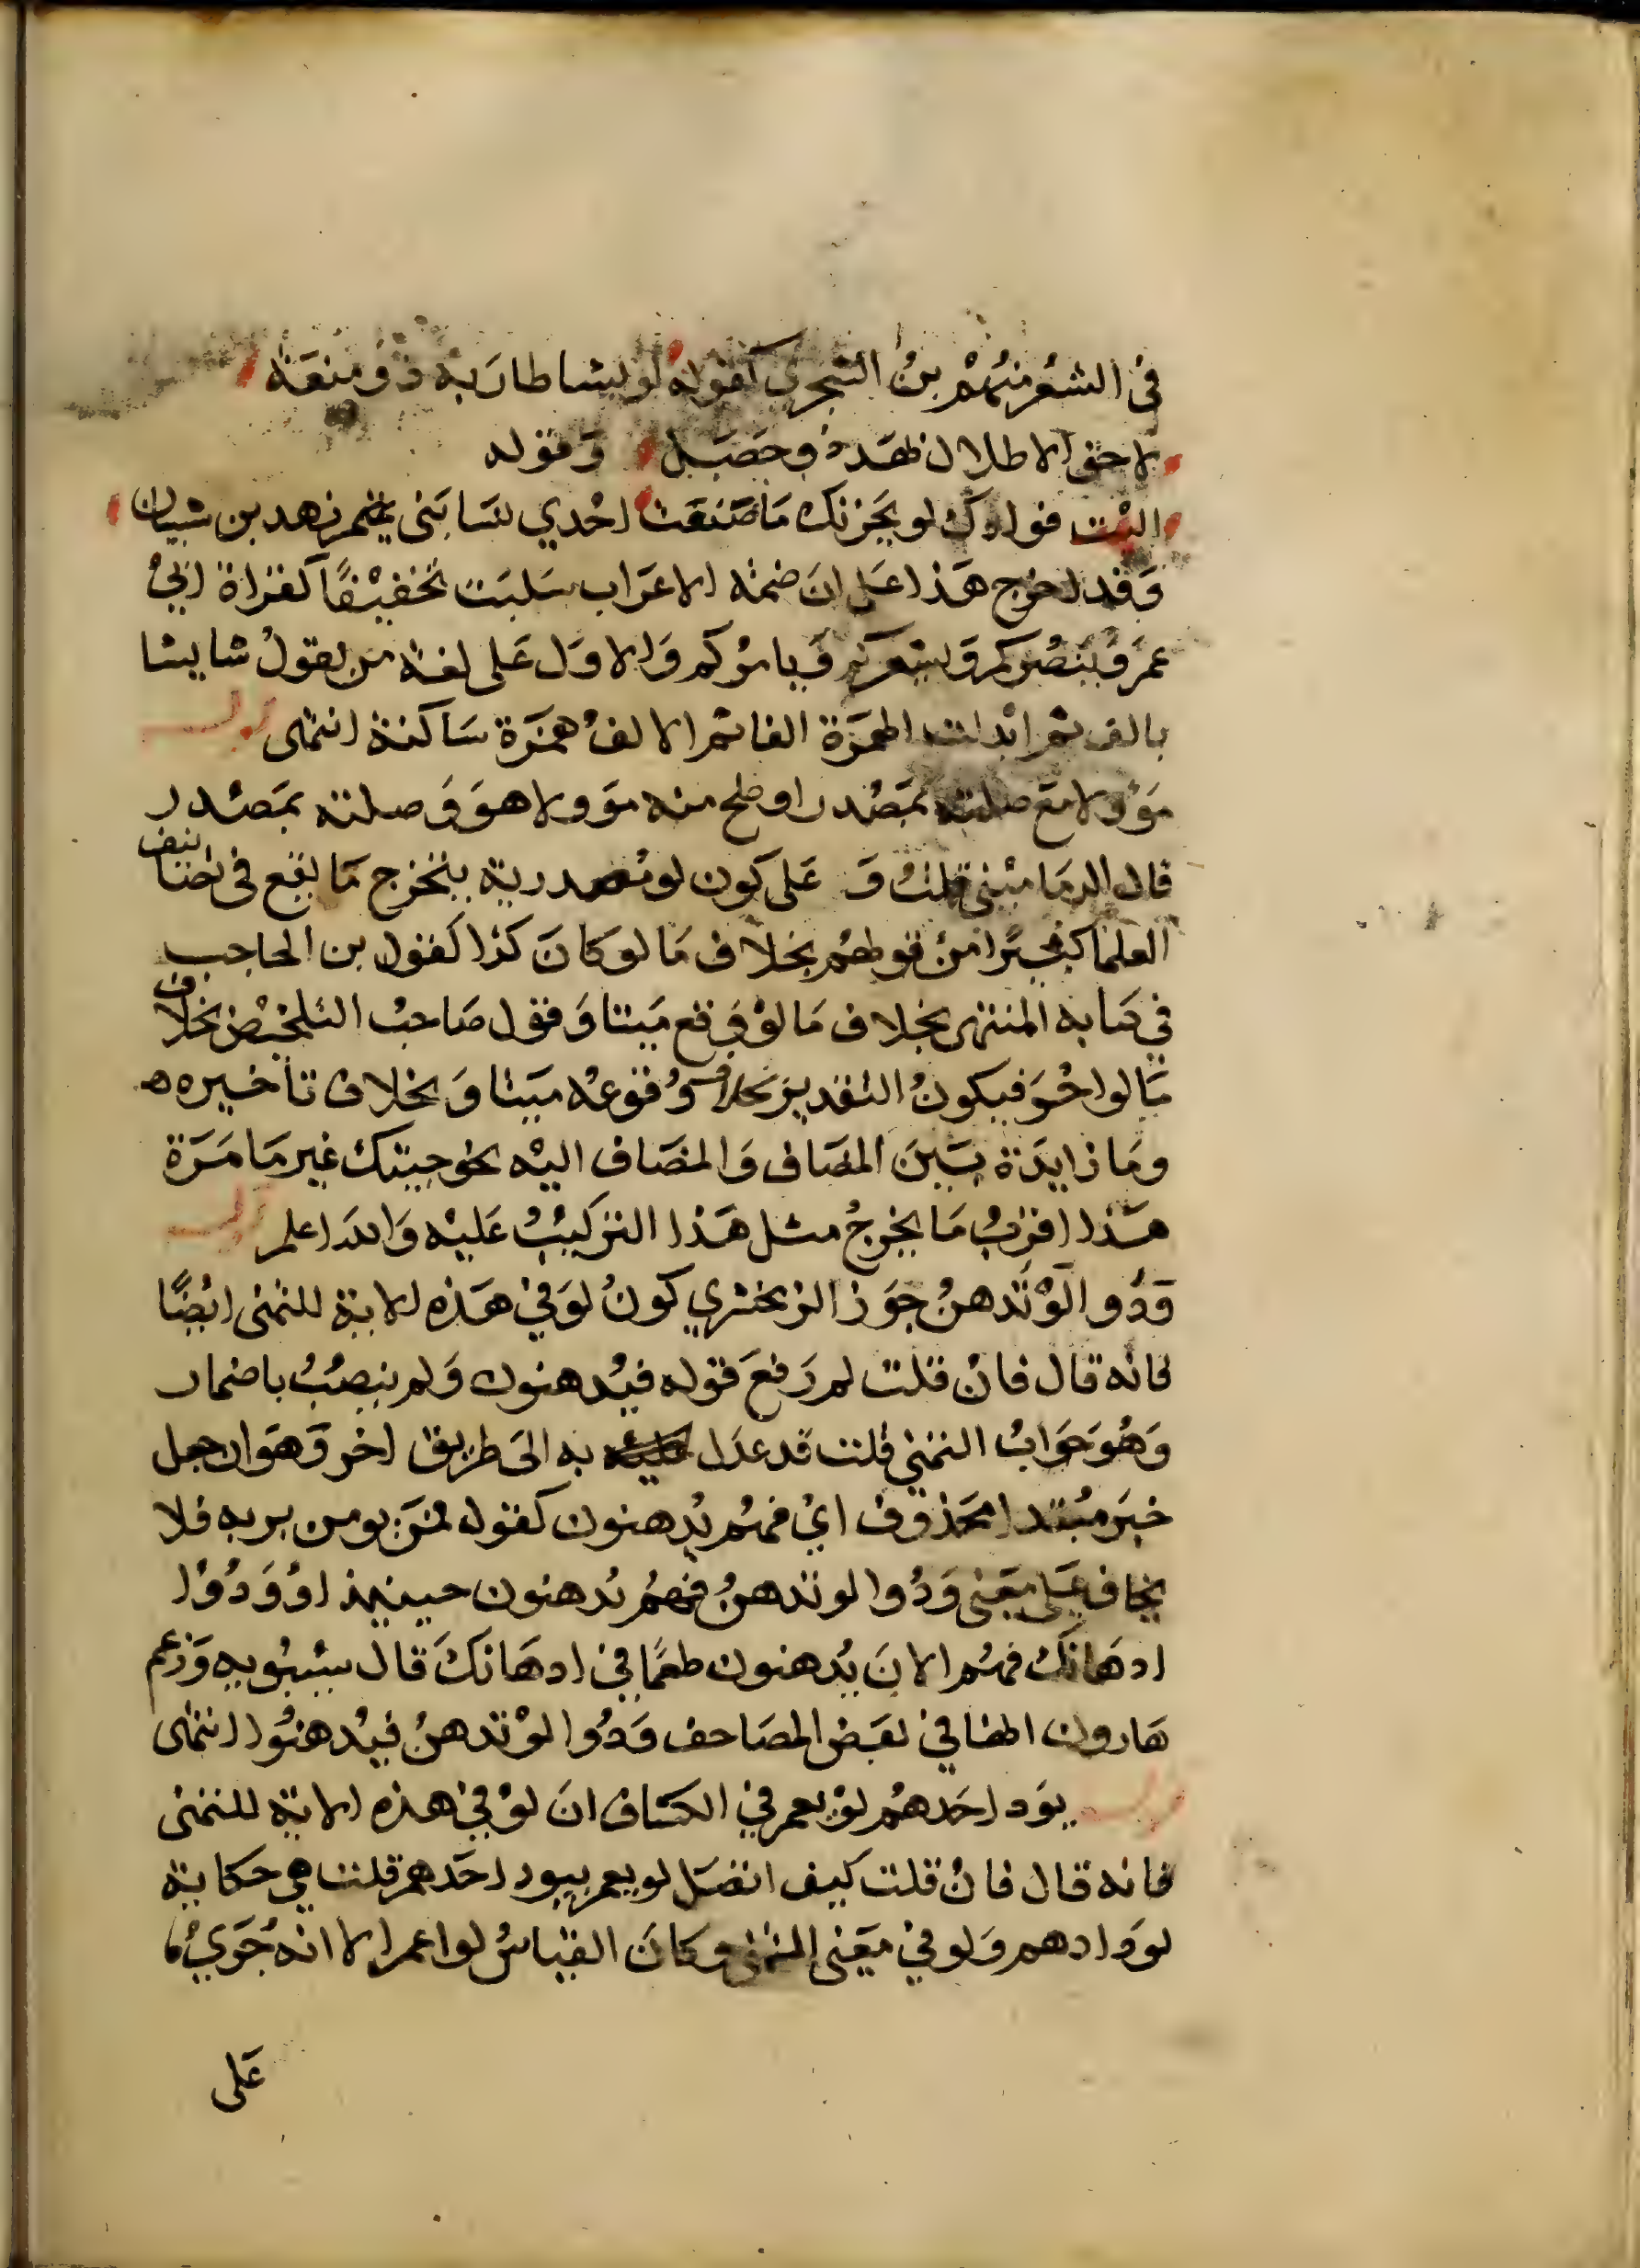 في الشعر منهم بن الشجري كقوله لو يشا طار به ذو منعة
لاحق الاطلال نهد ذو خصل وقوله
فوادك لو يحزنك ما صنعت احدي نسا بني بن شيبان
وقد خرج هذا على ان ضمة الاعراب سلبت تخفيفا كقراة ابي
عمرو ينصركم ويشعركم ويامركم والاول على لغة من يقول شا يشا
بالف ثم ابدلت الهمزة الفا ثم الالف همزة ساكنة انتهى قوله
موولا مع صلته بمصدر اوضح منه موولا هو وصلته بمصدر
قال الدماميني قلت و على كون لو مصدرية يتخرج ما يقع في تصانيف
العلما كثيرا من قولهم بخلاف ما لو كان كذا كقول بن الحاجب
في كتابه المنتهى بخلاف ما لو وقع مبينا وقول صاحب التلخيص بخلاف
ما لو اخر فيكون التقدير بخلاف وقوعه مبينا وبخلاف تاخيره
وما زايدة بين المضاف والمضاف اليه نحو جيتك غير ما مرة
هذا اقرب ما يخرج مثل هذا التركيب عليه والله اعلم قوله
ودوا لو تدهن جوز الزمخشري كون لو في هذه الاية للتمنى ايضا
فانه قال فان قلت لم رفع قوله فيدهنون ولم ينصب باضمار
وهو جواب التمني قلت قد عدل به الى طريق اخر وهو ان جعل
خبر مبتدا محذوف اي فهم يدهنون كقوله فمن يومن بربه فلا
يخاف على معنى ودوا لو تدهن فهم يدهنون حينيذ او ودوا
ادهانك فهم الان يدهنون طمعا في ادهانك قال سيبويه وزعم
هارون انها في بعض المصاحف ودوا لو تدهن فيدهنوا انتهى
قوله يود احدهم لو يعمر في الكشاف ان لو في هذه الاية للتمنى
فانه قال فان قلت كيف اتصل لو يعمر بيود احدهم قلت هي حكاية
لودادهم ولو في معنى التمنى وكان القياس لو اعمر الا انه جري
على